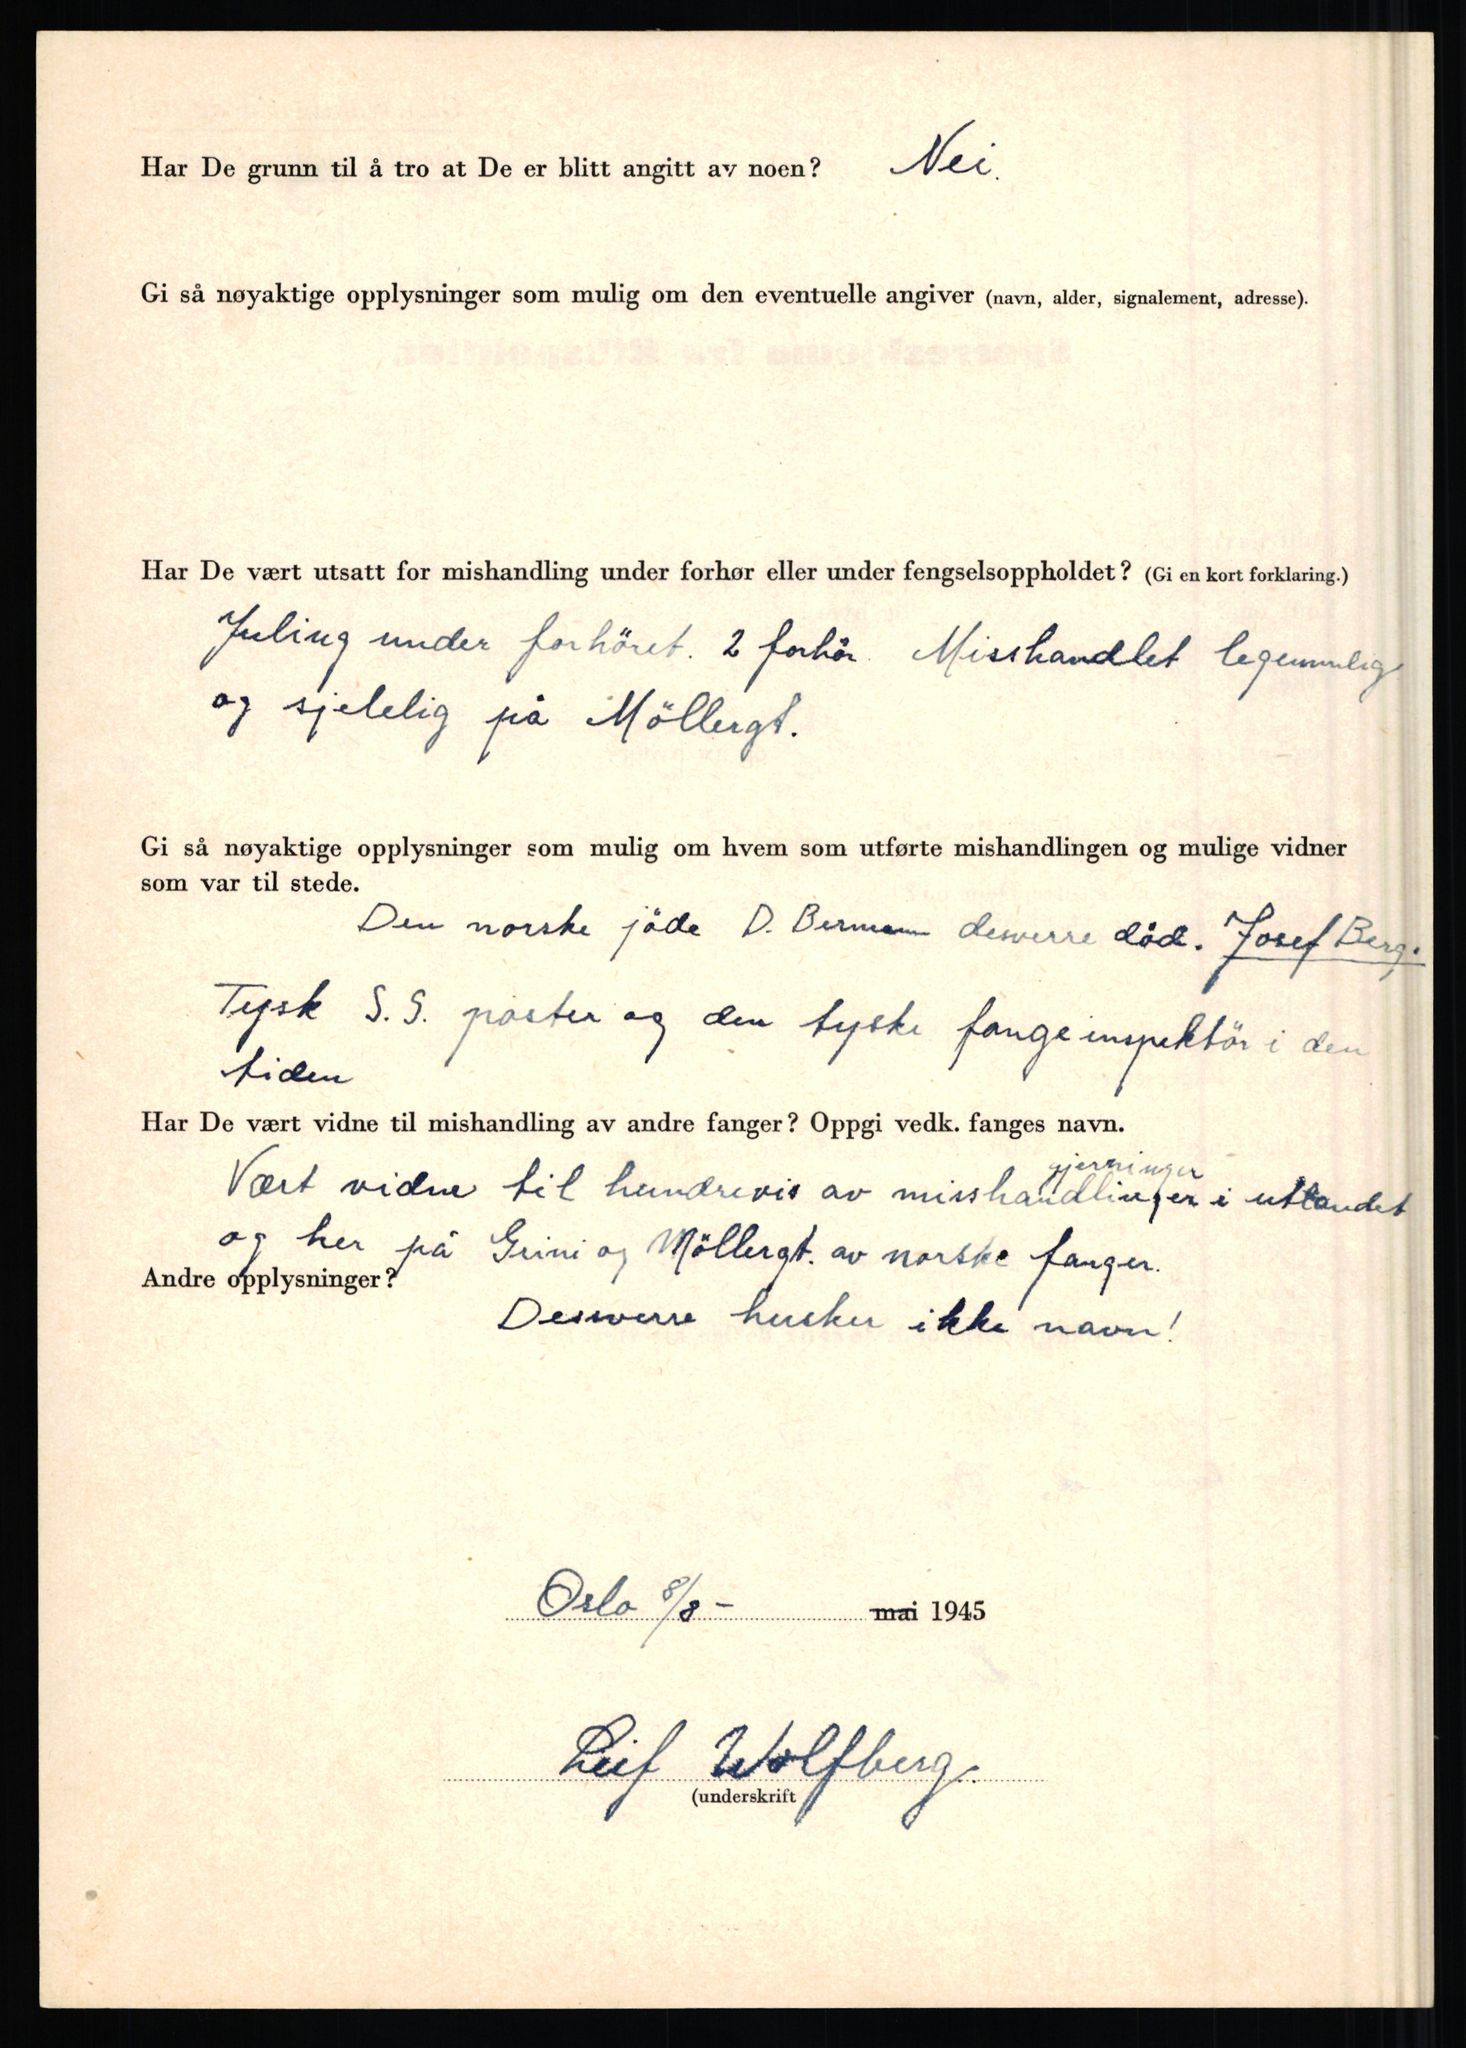 Har De grunn til å tro at De er blitt angitt av noen? Nei.
Gi så nøyaktige opplysninger som mulig om den eventuelle angiver (navn, alder, signalement, adresse).
Har De vært utsatt for mishandling under forhør eller under fengselsoppholdet? (Gi en kort forklaring.)
Juling under forhöret. 2 forhör. Misshandlet legemmlig
og sjelelig på Möllergt.
Gi så nøyaktige opplysninger som mulig om hvem som utførte mishandlingen og mulige vidner
som var til stede.
Den norske jöde D. Bermann desverre död. Josef Berg.
Tysk S.S. poster og den tyske fangeinspektör i den
tiden
Har De vært vidne til mishandling av andre fanger? Oppgi vedk. fanges navn.
gjerninger
Vært vidne til hundrevis av misshandlinger i utlandet
og her på Grini og Möllergt. av norske fanger.
Andre opplysninger?
Desverre husker ikke navn!
Oslo 8/8 - mai 1945
Leif Wolfberg.
(underskrift